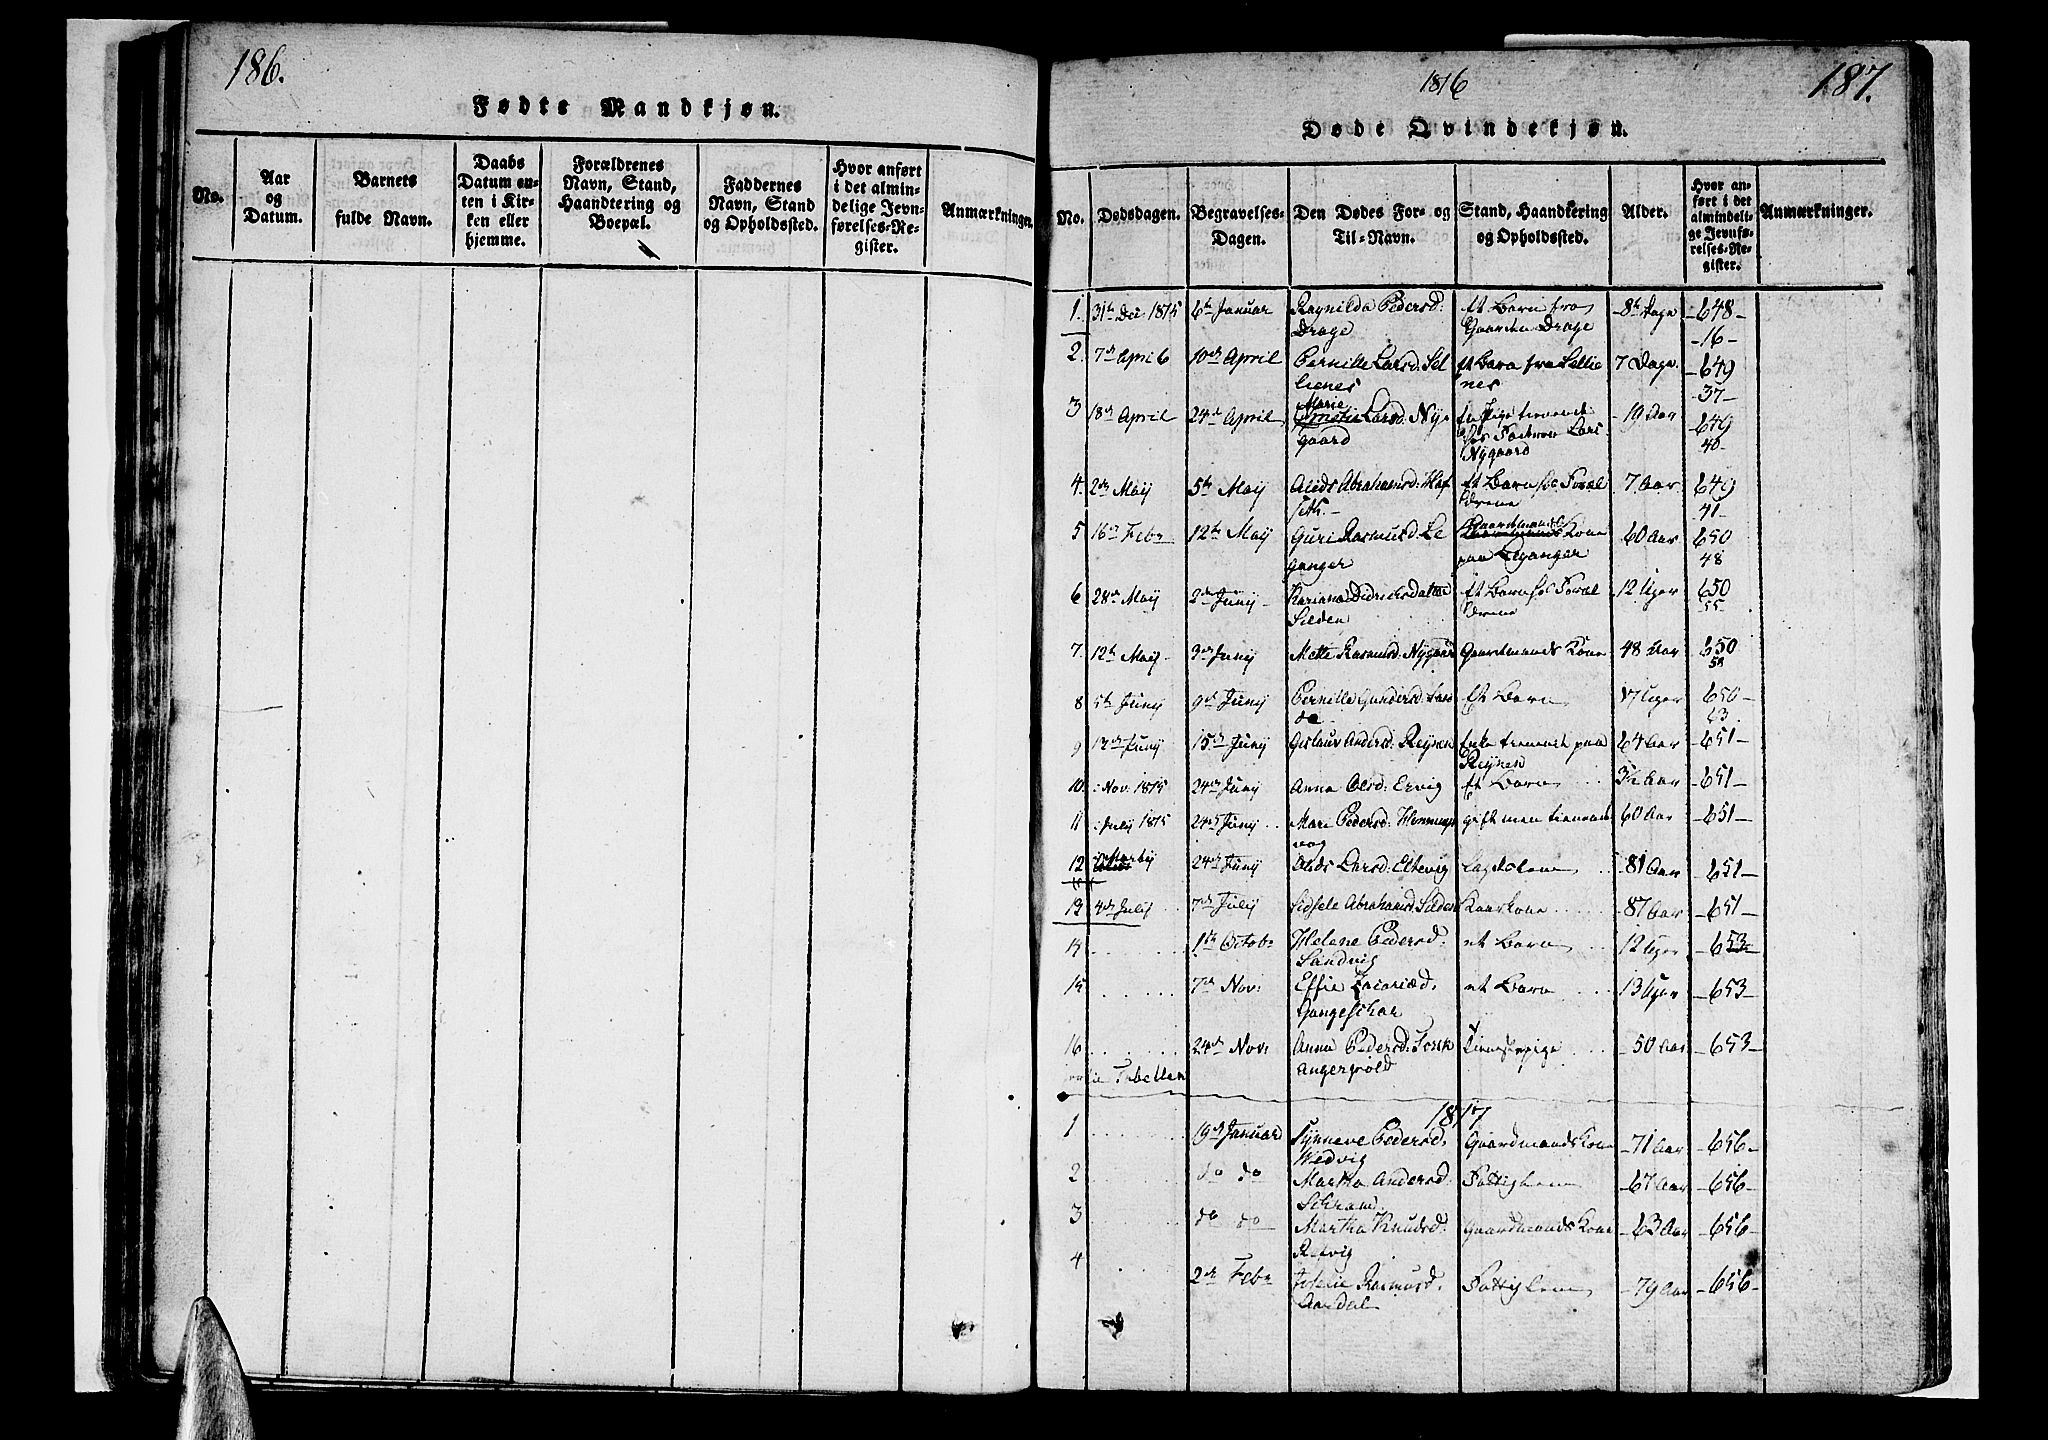 186.
Fødte Mandkjøn.
No.
Aar og Datum.
Barnets fulde Navn.
Daabs Datum enten i Kirken eller hjemme.
Forældrenes Navn, Stand, Haandtering og Boepæl.
Faddernes Navn, Stand og Opholdssted.
Hvor anført i det almindelige Jevnførelses-Register.
Anmærkninger.
1816
187.
Døde Qvindekjøn.
No.
Dødsdagen.
Begravelses-Dagen.
Den Dødes For- og Til-Navn.
Stand, Haandtering og Opholdssted.
Alder.
Hvor anført i det almindelige Jevnførelses-Register.
Anmærkninger.
1. 31te Dec 1815 6te Januar Ragnilda Pedersd: et Barn fra 8te Dage -648-
Drage Gaarden Drage -16-
2. 7de April 10de April Pernille Larsd: Sel et Barn fra Sellie 7 Dage. -649
lienes nes -37-
3 18de April 24de April Marie Larsd: Nye en Pige 19 Aar -649
gaard Lars Nygaard 40-
4. 2den Maij 5te Maij Alids Abrahamsd: Haf et Barn 7 Aar 649
seth - 41-
5 16de Febr 12te Maij Guri Rasmusd: Le Gaardmands Kone 60 Aar 650
ganger paa Leganger 48
6 28de Maij 2den Junij Didrichsdatter et Barn 12 Uger 650
Silden 55
7. 12te Maij 3die Junij Mette Rasmusd: Nygaard Gaardmands Kone 48 Aar 650
8 5te Junij 9de Junij Pernille Gundersd: Et Barn 17 Uger 650-
9 Junij 15de Junij Andersd: Reijnen Enke paa 64 Aar -651-
Reijnen
10. Nov: 1815 24de Junij Anna Olsd: Ervig Et Barn Aar -651-
11 Julij 1815 24de Junij Mari Pedersd: gift men 60 Aar -651-
vog
12 24de Junij Alids Larsd: Eltevig Lægdslem 81 Aar -651-
13 4de Julij 7de Julij Sidsele Abrahamsd: Silden Kaarkone 87 Aar -651-
14 1te Octobr Helene Pedersd. et Barn 12 Uger -653-
Sandvig
15 7de Nov: Effie et Barn 13 Uger -653-
16 24de Nov: Anna Pedersd: Tienestepige -50 Aar -653-
Tabellen
1817
1 19de Januar Synneve Pedersd. Gaardmands Kone -71 Aar -656-
Wedvig
2 do do Martha Andersd. Fattiglem -67 Aar -656-
3 do do Martha Knudsd. Gaardmands Kone -63 Aar -656-
Refvig
4 2den Febr Rasmusd. Fattiglem -79 Aar -656-
Aardal